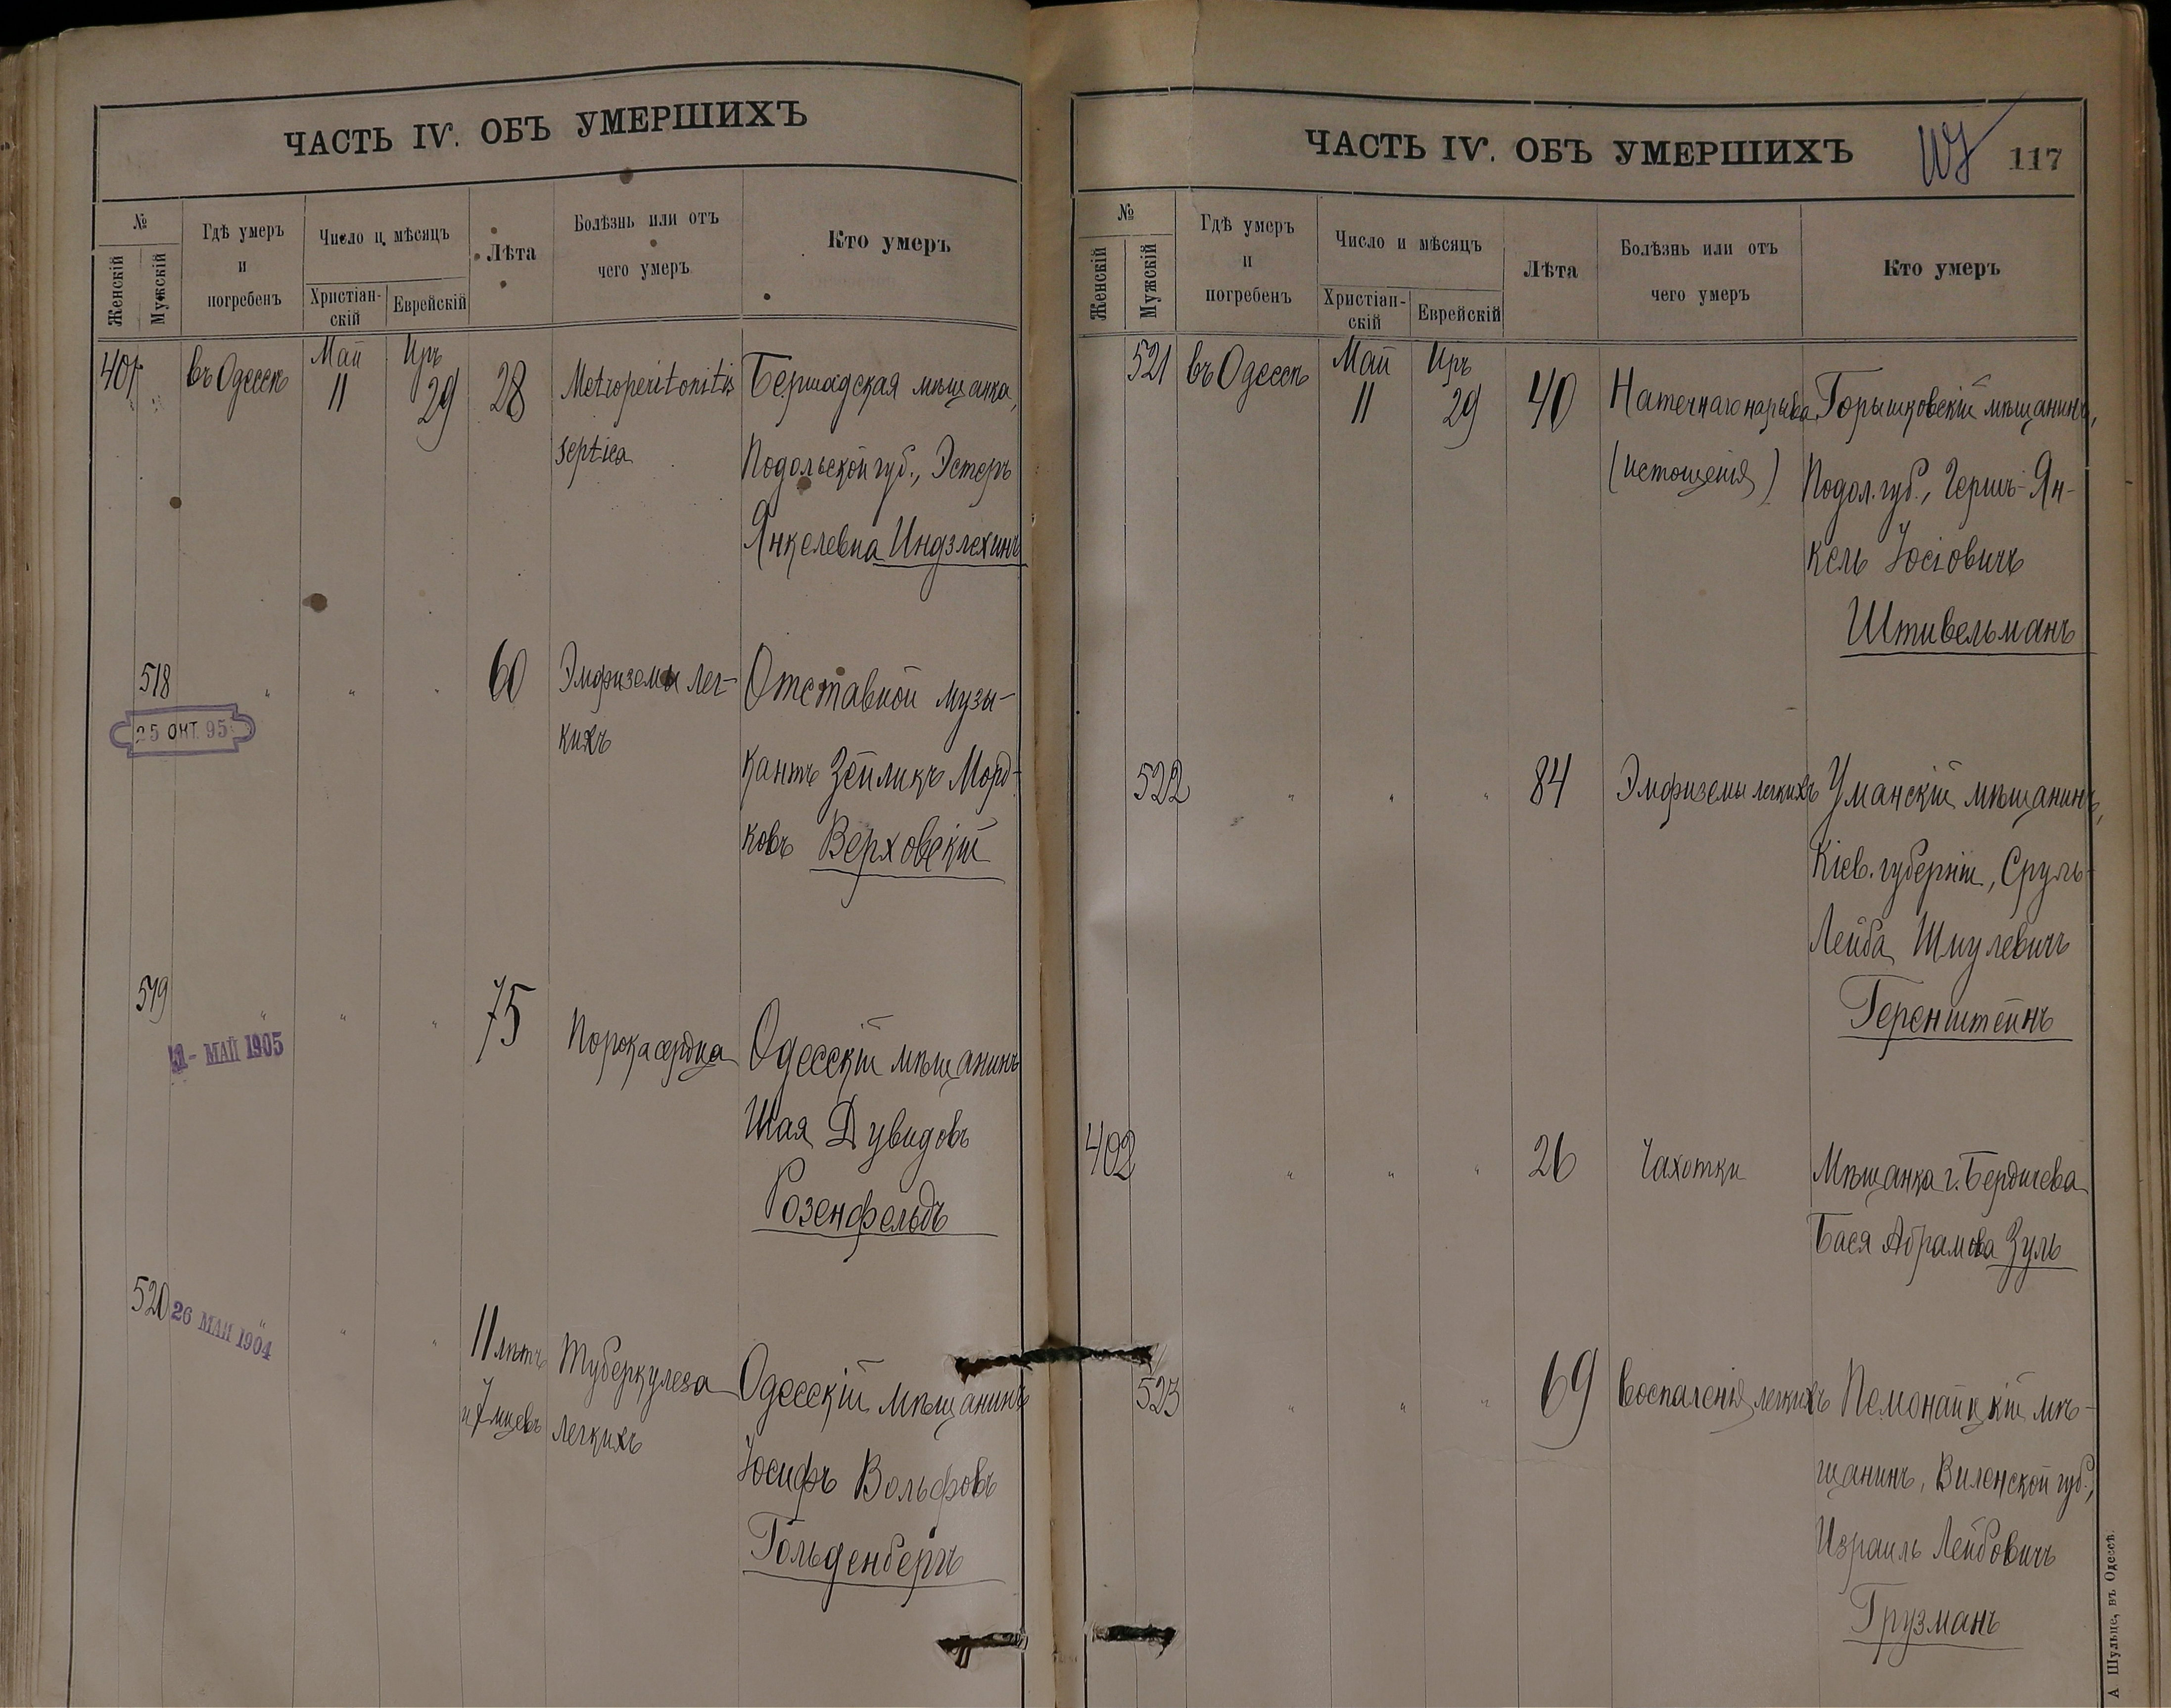 ЧАСТЬ IV. ОБЪ УМЕРШИХЪ
№
Женскій
Мужскій
Гдѣ умеръ
и
погребенъ
Число и мѣсяцъ
Христіан-
скій
Еврейскій
Лѣта
Болѣзнь или отъ
чего умеръ
Кто умеръ
401
въ Одессѣ
Май
11
Иръ
29
28
Metroperitonitis
septica
Бершадская мѣщанка,
Подольской губ., Эстеръ
Янкелевна Индзлехинъ
518
25 ОКТ. 95
"
"
"
60
Эмфиземы лег-
кихъ
Отставной музы-
кантъ Зейликъ Морд-
ковъ Верховскій
519
"
- МАЙ 1905
"
"
75
Порока сердца
Одесскій мѣщанинъ
Шая Дувидовъ
Розенфельдъ
520
26 МАЙ 1904
"
"
"
11 лѣтъ
и 7 мцевъ
Туберкулеза
легкихъ
Одесскій мѣщанинъ
Іосифъ Вольфовъ
Гольденбергъ
ЧАСТЬ IV. ОБЪ УМЕРШИХЪ
117
№
Женскій
Мужскій
Гдѣ умеръ
и
погребенъ
Число и мѣсяцъ
Христіан-
скій
Еврейскій
Лѣта
Болѣзнь или отъ
чего умеръ
Кто умеръ
521
въ Одессѣ
Май
11
Иръ
29
40
Натечнаго нарыва
(истощенія)
Горышковскій мѣщанинъ,
Подол. губ., Гершъ-Ян-
кель Іосіовичъ
Штивельманъ
522
"
"
"
84
Эмфиземы легкихъ
Уманскій мѣщанинъ,
Кіев. губерніи, Сруль-
Лейба Шмулевичъ
Геренштейнъ
402
"
"
"
26
Чахотки
Мѣщанка г. Бердичева
Бася Абрамова Зуль
523
"
"
"
69
Воспаленія легкихъ
Немонайцкій мѣ-
щанинъ, Виленской губ.,
Израиль Лейбовичъ
Грузманъ
А Шульце, въ Одессѣ.